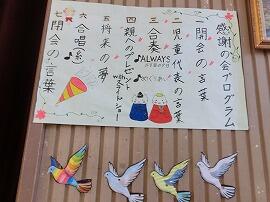 感謝の会プログラム
一 開会の言葉
二 児童代表の言葉
三 合奏
♪ALWAYS
四 親へのプレゼント
withスライドショー
五 将来の夢
六 合唱♪絆
七 閉会の言葉